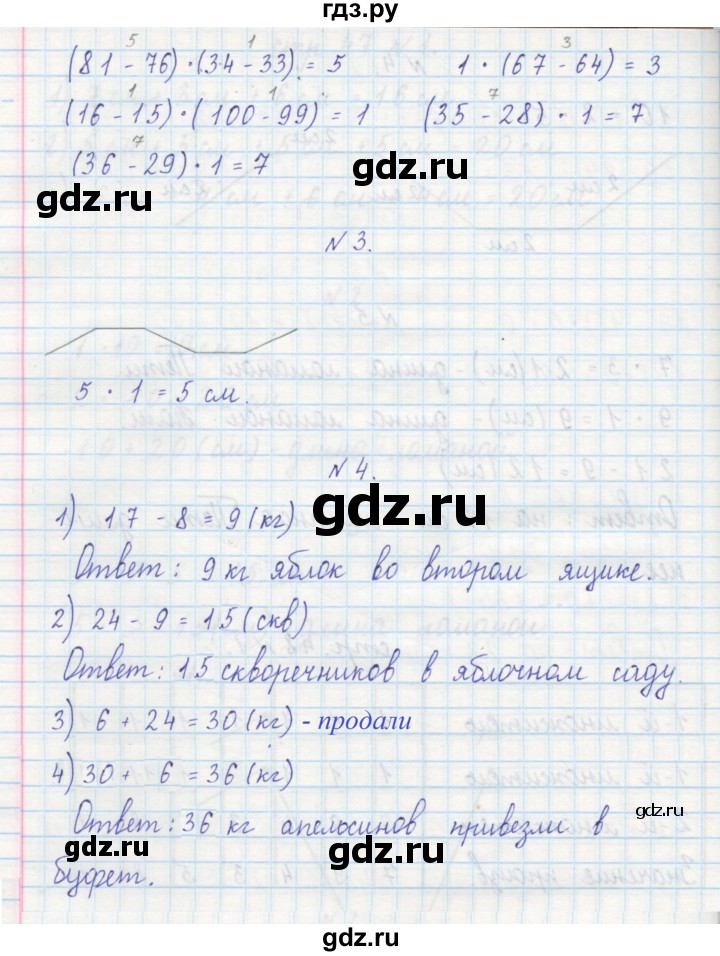 гдз.ру
5 1 3
(81 - 76) · (34 - 33) = 5 1 · (67 - 64) = 3
1 1 7
(16 - 15) · (100 - 99) = 1 (35 - 28) · 1 = 7
7
(36 - 29) · 1 = 7
gdz.ru gdz.ru
N 3.
5 · 1 = 5 см.
N 4.
gdz.ru
1) 17 - 8 = 9 (кг)
Ответ: 9 кг яблок во втором ящике.
2) 24 - 9 = 15 (скв)
Ответ: 15 скворечников в яблочном саду.
3) 6 + 24 = 30 (кг) - продали
4) 30 + 6 = 36 (кг)
gdz.ru
Ответ: 36 кг апелосинов привезли в
буфет.
gdz.ru gdz.ru
gdz.ru